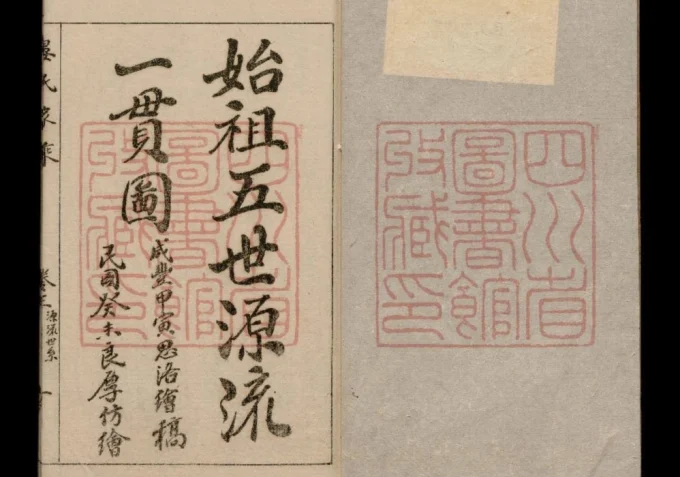 四川省
圖書館
收藏印
始祖五世源流
一貫圖
咸豐甲寅思洛繪稿
民国癸未良厚仿繪
四川省
圖書館
收藏印
氏家乘
卷三
源流世系